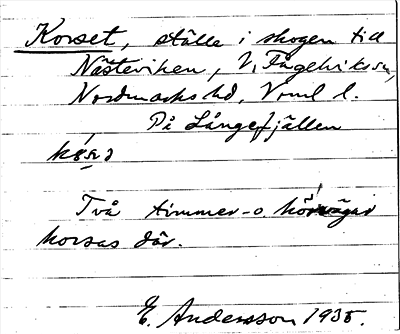 Korset, ställe i skogen till
Nästeviken, V. Fågelviks sn,
Nordmarks hd, Vrml l.
På Långefjällen
Två timmer- o. körvägar
korsas där.
E. Andersson 1935.